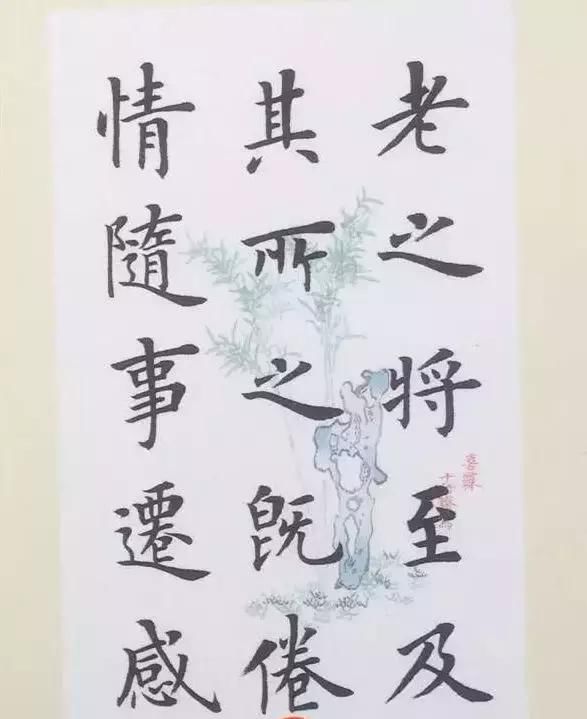 老之将至及
其所之既倦
情隨事遷感